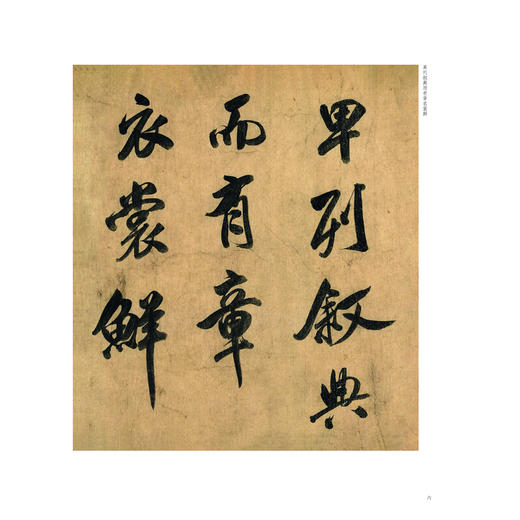 甲列叙典
而有章
衣裳鲜
六